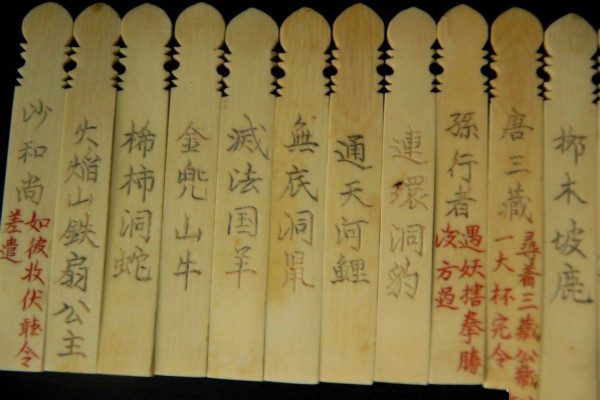 木坡鹿
唐三藏
尋着三藏公
一大杯完令
孫行者
遇妖搳拳勝
方過
連環洞豹
通天河鯉
無底洞鼠
滅法国羊
金兜山牛
桸柿洞蛇
火焰山鉄扇公主
沙和尚
如彼收伏聴令
差遣